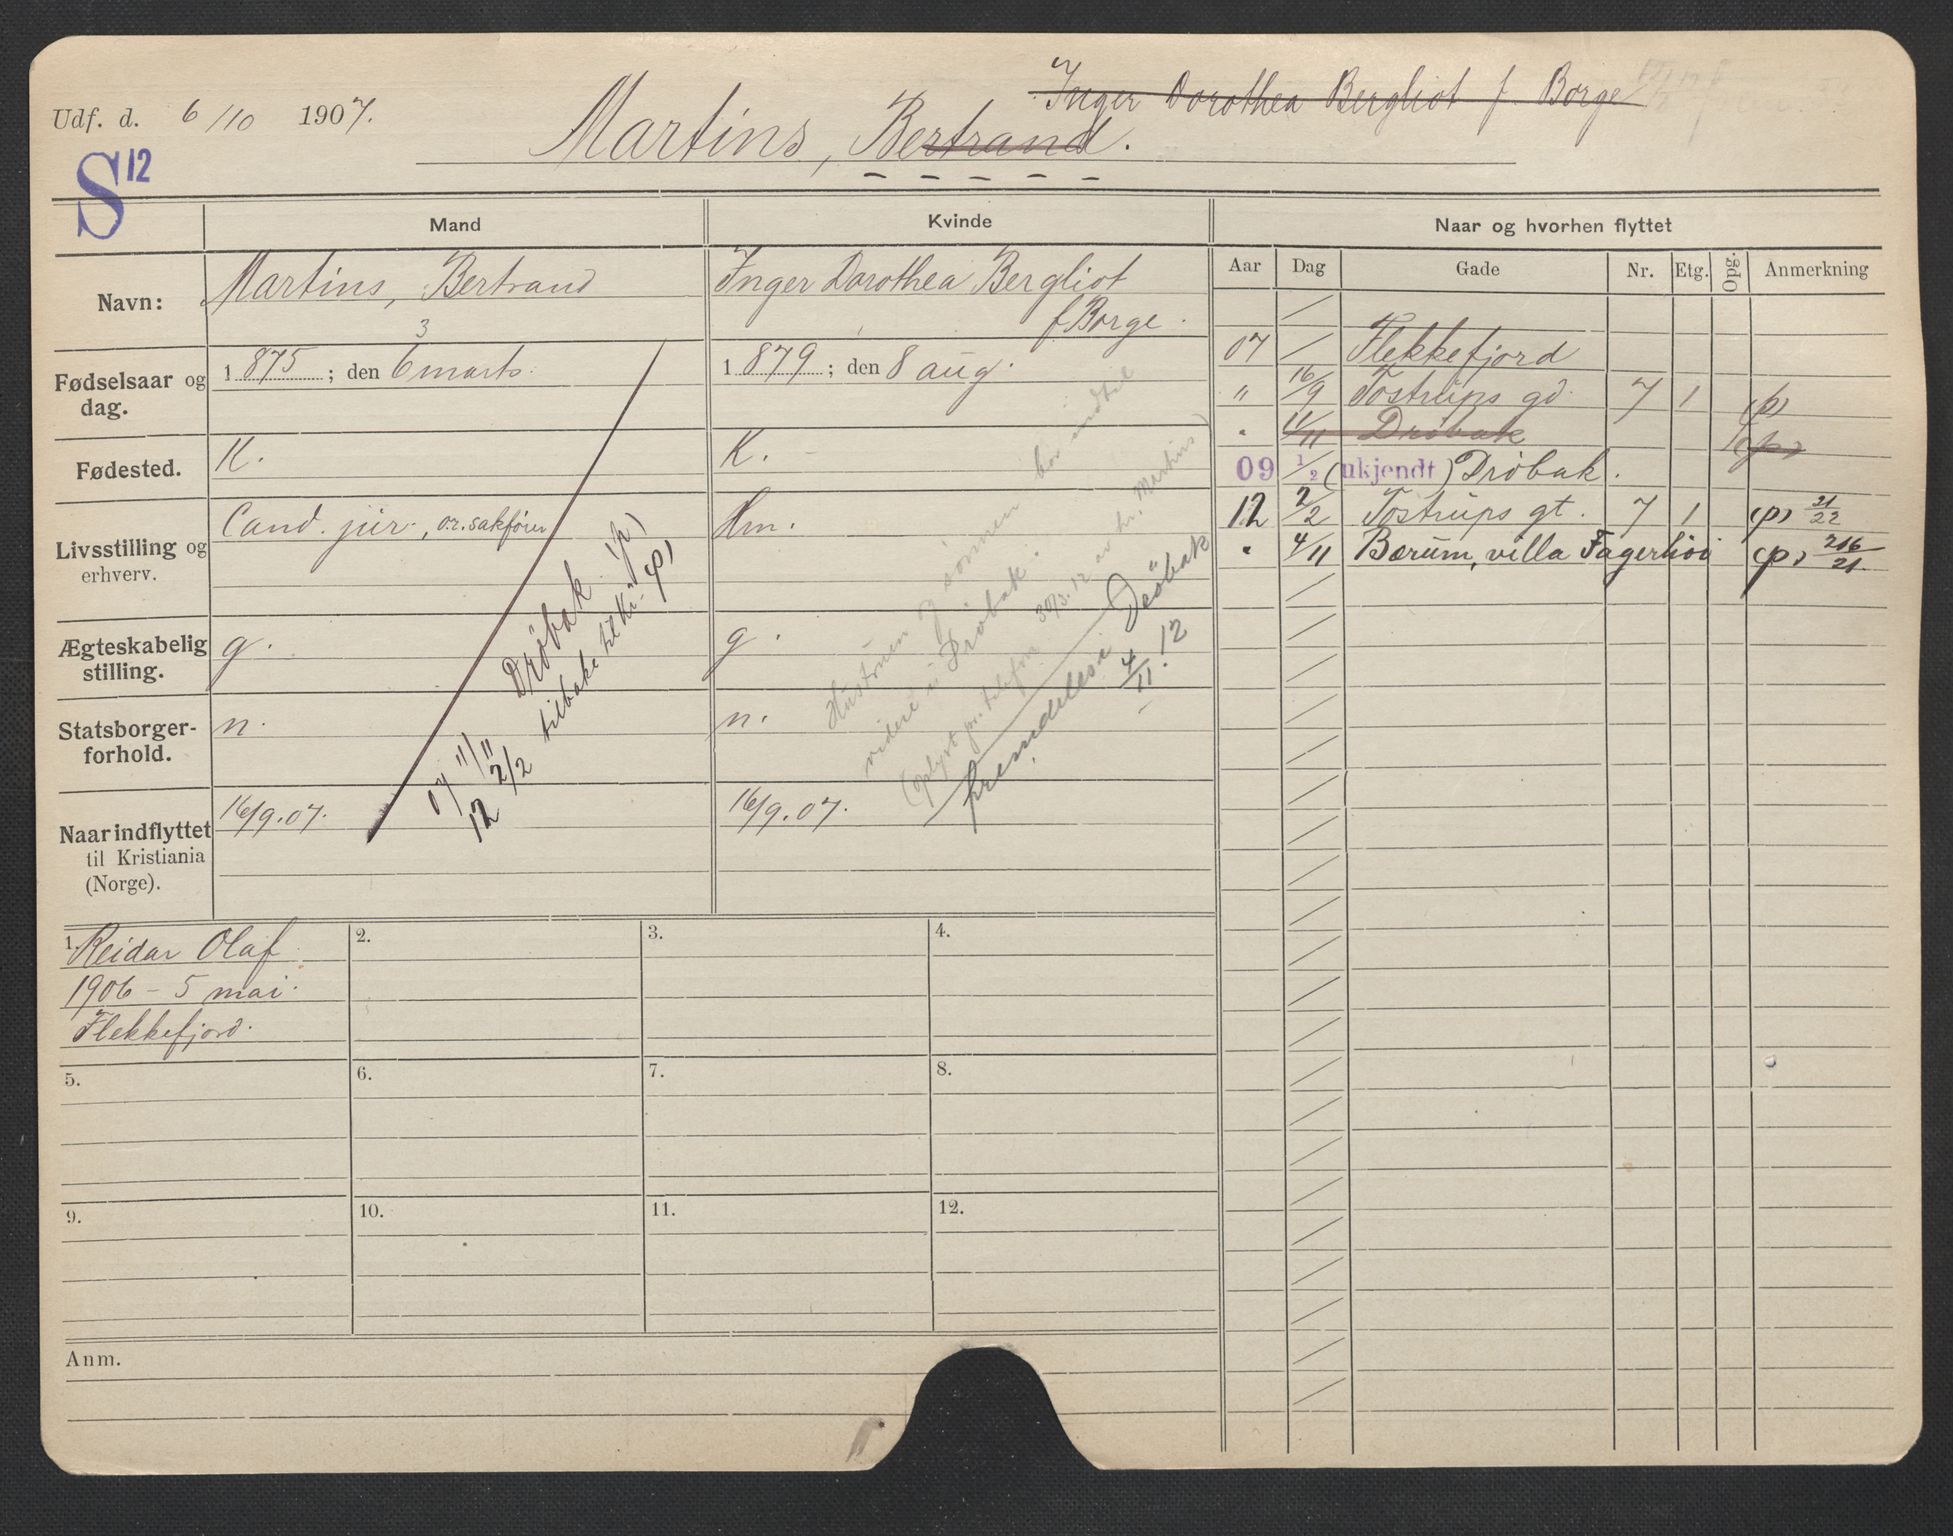 Udf. d. 6/10 1907.
Inger Dorothea Bergliot f. Borge
Martins, Bertrand.
S 12
Mand
Kvinde
Naar og hvorhen flyttet
Navn:
Martins, Bertrand
Inger Dorothea Bergliot
f. Borge.
Fødselsaar og dag.
1875; den 6 marts. 3
1879; den 8 aug.
Fødested.
K.
K.
Livsstilling og erhverv.
Cand. jur., o.r.sakfører
Hm.
Ægteskabelig stilling.
g.
g.
Statsborgerforhold.
n.
n.
Naar indflyttet til Kristiania (Norge).
16/9.07.
16/9.07.
07 11/11 Dröbak (p)
12 2/2 tilbake til Kr. (p)
Hustruen og sønnen bor indtil
videre i Drøbak.
(oplyst pr. telefon 30/3.12 av hr. Martins)
fremdeles i Drøbak
4/11.12
Aar Dag Gade Nr. Etg. Opg. Anmerkning
07 / Flekkefjord
" 16/9 Tostrups gd. 7 1 (p)
" 11/11 Drøbak (p)
09 1/2 (ukjendt) Drøbak.
12 2/2 Tostrups gt. 7 1 (p) 21/22
" 4/11 Bærum, villa Fagerhöi (p) 216/21
1. Reidar Olaf
1906 - 5 mai.
Flekkefjord.
2.
3.
4.
5.
6.
7.
8.
9.
10.
11.
12.
Anm.